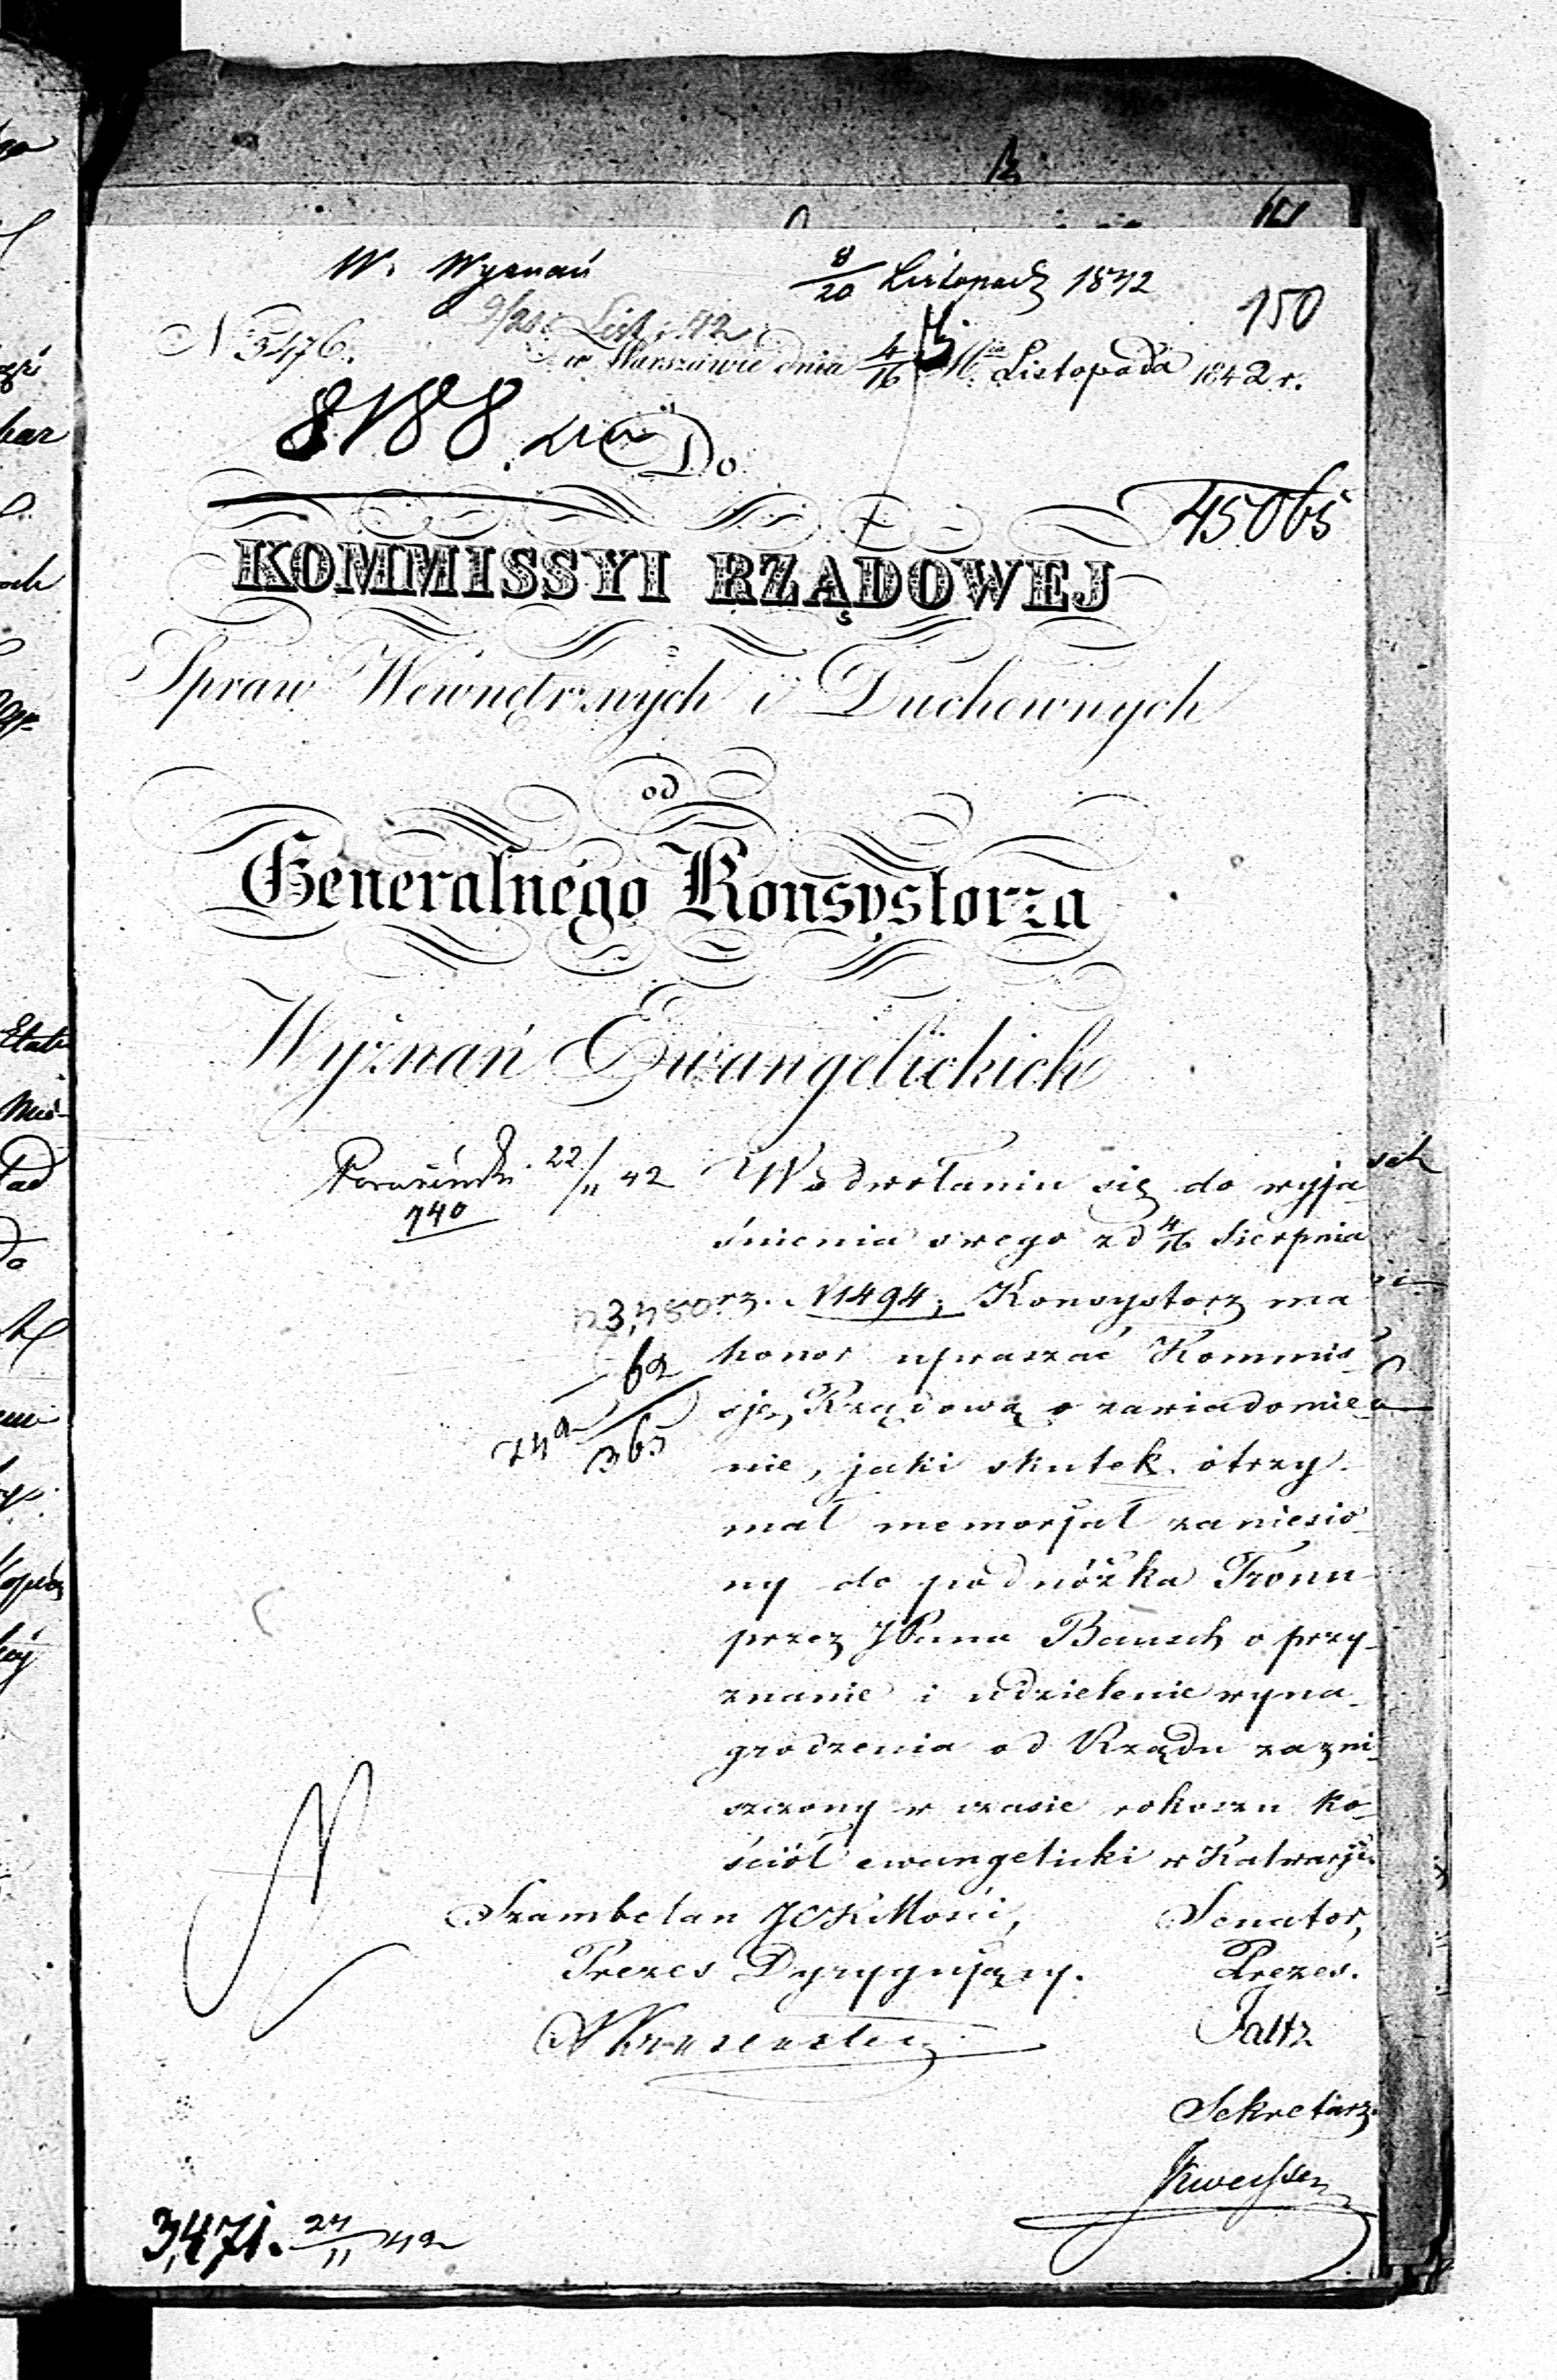 W. Wyznań 8/20 Listopad 1842
9/21 List. 42 150
N 5476. w Warszawie dnia 4/16 Mca Listopada 1842 r.
8188. Do
45065
KOMMISSYI RZĄDOWEJ
Spraw Wewnętrznych i Duchownych
od
Generalnego Konsystorza
Wyznań Ewangelickich
22/11 42 W odwołaniu się do wyja-
740
śnienia swego z d 4/16 Sierpnia
rz. N 1494; Konsystorz ma
62 honor upraszać Kommis-
syę Rządową o zawiadomie-
365
nie, jaki skutek otrzy-
mał memorjał zaniesio-
ny do podnóżka Tronu
przez JPana Bausch o przy-
znanie i udzielenie wyna-
grodzenia od Rządu za zni-
szczony w czasie rokoszu ko-
ściół ewangelicki w Kalwarji.
Szambelan JCKMości, Senator,
Prezes Dyrygujący. Prezes.
Faltz
Sekretarz.
3,471. 24/11 42